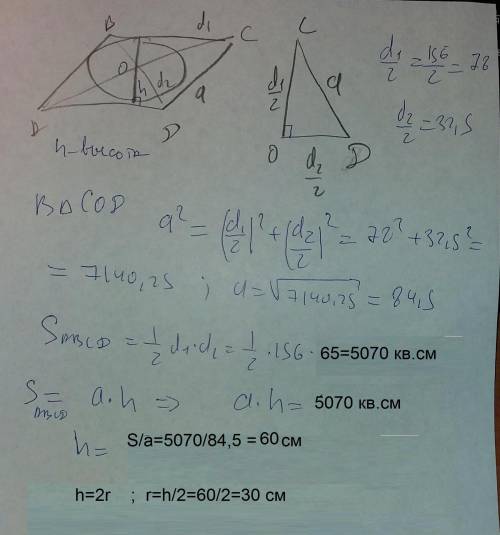 B d₁ C
O h d₂ a
A D
h-высота
C
d₁/2 a
O D
d₂/2
d₁/2 = 156/2 = 78
d₂/2 = 32,5
В Δ COD
a² = (d₁/2)² + (d₂/2)² = 78² + 32,5² =
= 7140,25 ; a = √7140,25 = 84,5
S ABCD = 1/2 d₁·d₂ = 1/2 · 156 · 65=5070 кв.см
S ABCD = a·h => a·h = 5070 кв.см
h = S/a=5070/84,5 = 60 см
h=2r ; r=h/2=60/2=30 см